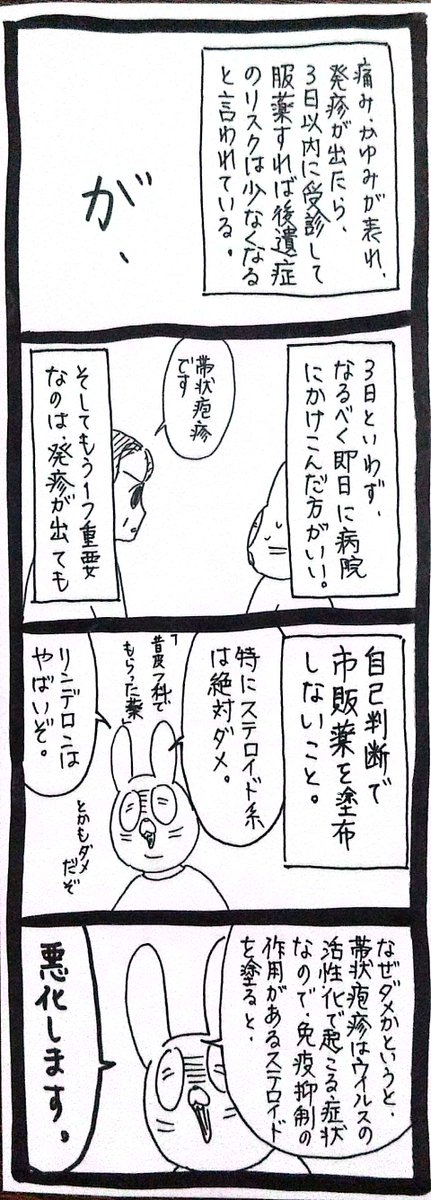 痛み、かゆみが表れ、
発疹が出たら、
3日以内に受診して
服薬すれば後遺症
のリスクは少なくなる
と言われている。
が、
3日といわず、
なるべく即日に病院
にかけこんだ方がいい！。
帯状疱疹
です
そしてもう1つ重要
なのは、発疹が出ても
自己判断で
市販薬を塗布
しないこと。
特にステロイド系
は絶対ダメ。
「昔皮フ科で
もらった薬」
とかもダメ
だぞ
リンデロンは
やばいぞ。
なぜダメかというと、
帯状疱疹はウイルスの
活性化で起こる症状
なので、免疫抑制の
作用があるステロイド
を塗ると、
悪化します。